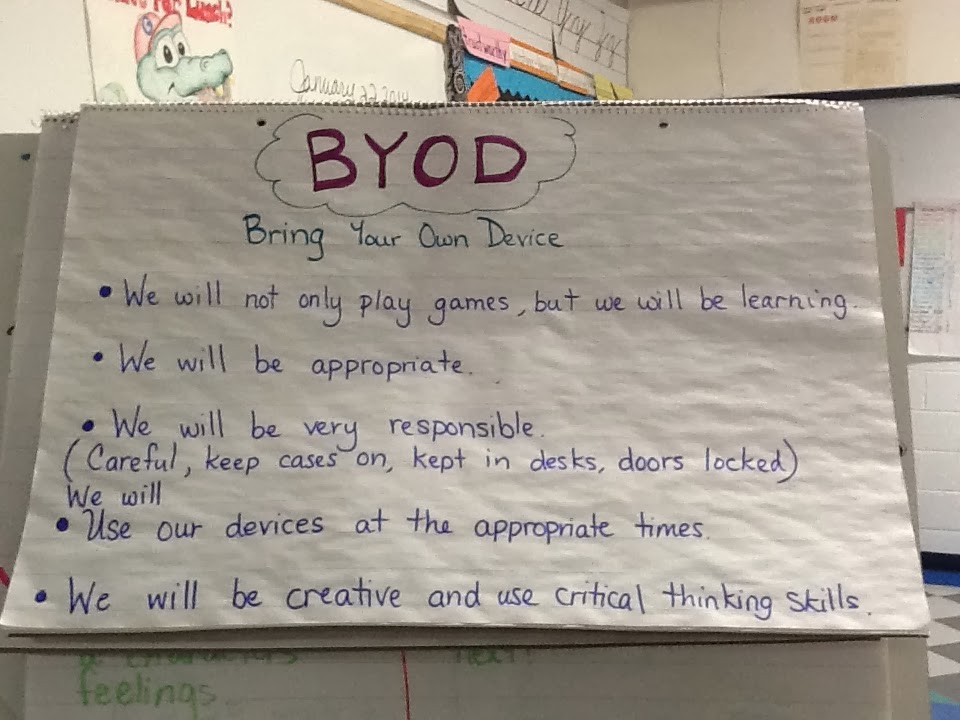 For Lunch?
January 22, 2014
trustworthy
BYOD
Bring Your Own Device
• We will not only play games, but we will be learning.
• We will be appropriate.
• We will be very responsible.
(Careful, keep cases on, kept in desks, doors locked)
We will
• Use our devices at the appropriate times.
• We will be creative and use critical thinking skills.
feelings